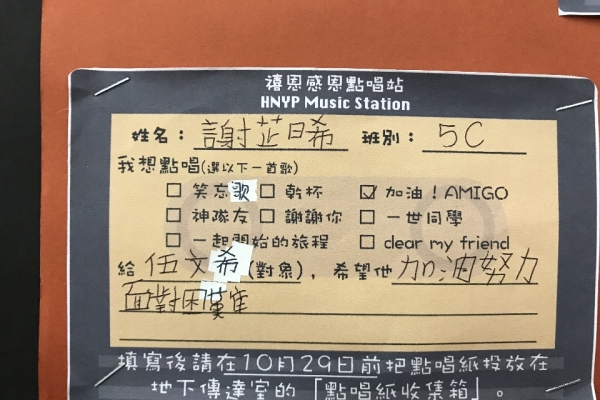 禧恩感恩點唱站
HNYP Music Station
姓名：謝芷晞 班別：5C
我想點唱(選以下一首歌)
□ 笑忘歌 □ 乾杯 ☑ 加油！AMIGO
□ 神隊友 □ 謝謝你 □ 一世同學
□ 一起開始的旅程 □ dear my friend
給 伍文希 (對象)，希望他 加油努力
面對困難
填寫後請在10月29日前把點唱紙投放在
地下傳達室的「點唱紙收集箱」。